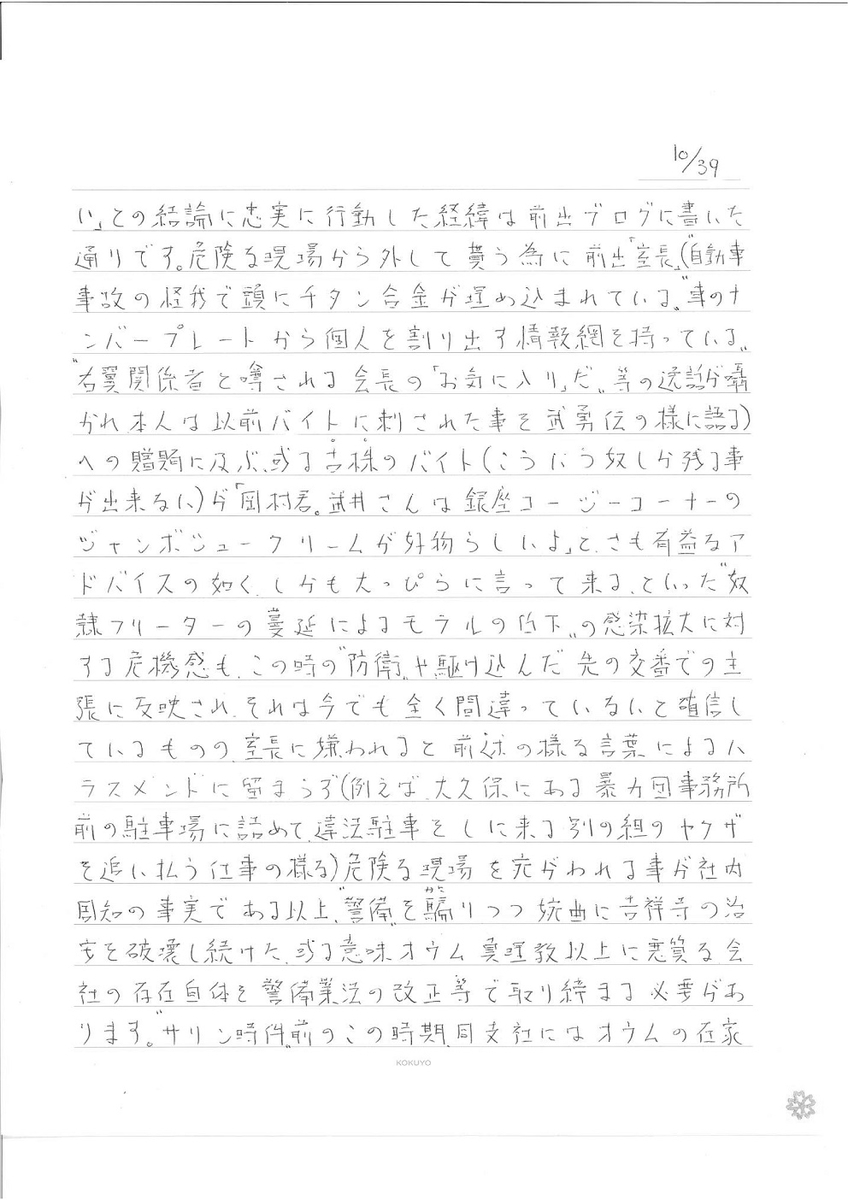 10/39
い」との結論に忠実に行動した経緯は前出ブログに書いた
通りです。危険な現場から外して貰う為に前出「室長」(“自動車
事故の怪我で頭にチタン合金が埋め込まれている”“車のナ
ンバープレートから個人を割り出す情報網を持っている”
“右翼関係者と噂される会長の「お気に入り」だ”等の逸話が囁
かれ本人は以前バイトに刺された事を武勇伝の様に語る)
への贈賄に及ぶ、或る古株のバイト(こういう奴しか残る事
が出来ない)が「岡村君。武井さんは銀座コージーコーナーの
ジャンボシュークリームが好物らしいよ」と、さも有益なア
ドバイスの如く、しかも大っぴらに言って来る、といった“奴
隷フリーターの蔓延によるモラルの低下”の感染拡大に対
する危機感も、この時の“防衛”や駆け込んだ先の交番での主
張に反映され、それは今でも全く間違っていないと確信し
ているものの、室長に嫌われると前述の様な言葉によるハ
ラスメンドに留まらず(例えば、大久保にある暴力団事務所
前の駐車場に詰めて、違法駐車をしに来る別の組のヤクザ
を追い払う仕事の様な)危険な現場を宛がわれる事が社内
周知の事実である以上、“警備”を騙りつつ婉曲に吉祥寺の治
安を破壊し続けた、或る意味オウム真理教以上に悪質な会
社の存在自体を警備業法の改正等で取り締まる必要があ
ります。“サリン時件”前のこの時期、同支社にはオウムの在家
KOKUYO